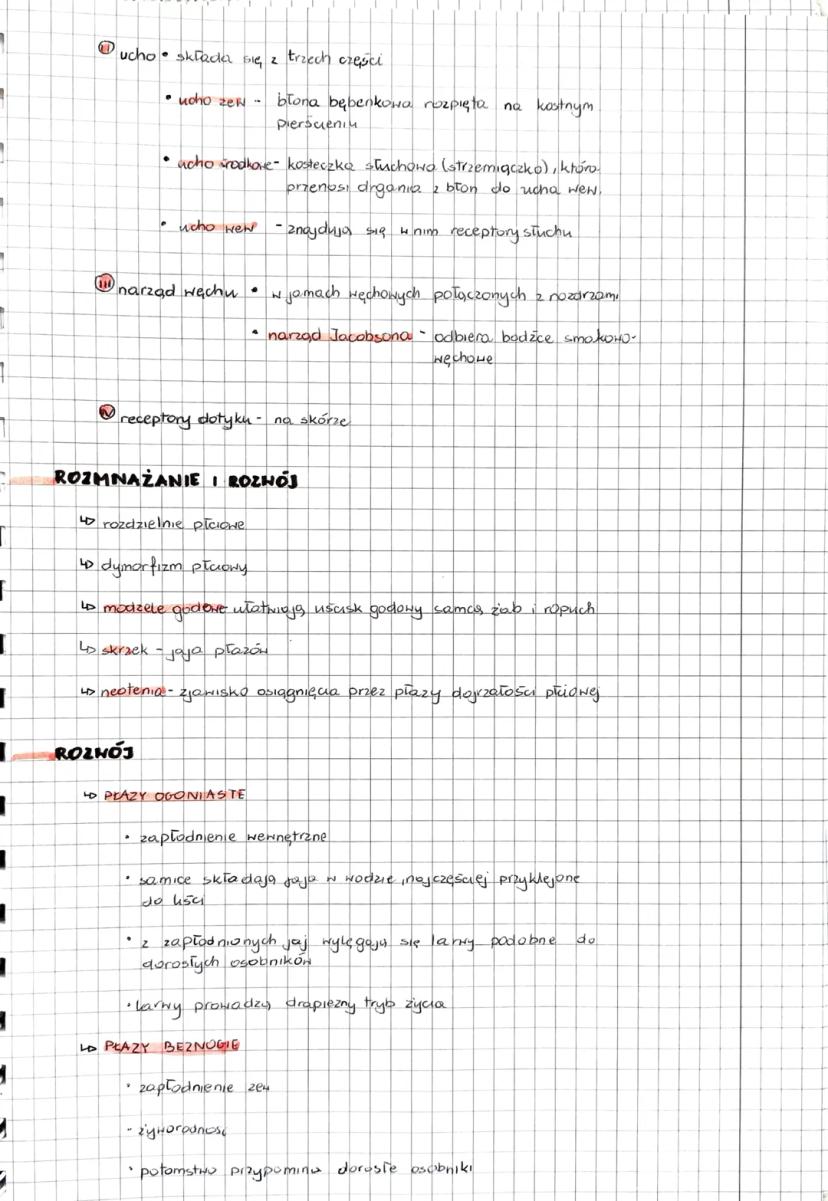 II ucho • składa się z trzech części
• ucho zew - błona bębenkowa rozpięta na kostnym
pierścieniu
• ucho środkowe - kosteczka słuchowa (strzemiączko), która
przenosi drgania z błon do ucha wew.
• ucho wew - znajdują się w nim receptory słuchu
III narząd węchu • w jamach węchowych połączonych z nozdrzami
• narząd Jacobsona - odbiera bodźce smakowo-
węchowe
IV receptory dotyku - na skórze
ROZMNAŻANIE I ROZWÓJ
↳ rozdzielnie płciowe
↳ dymorfizm płciowy
↳ modzele godowe ułatwiają uścisk godowy samca żab i ropuch
↳ skrzek - jaja płazów
↳ neotenia - zjawisko osiągnięcia przez płazy dojrzałości płciowej
ROZWÓJ
↳ PŁAZY OGONIASTE
• zapłodnienie wewnętrzne
• samice składają jaja w wodzie, najczęściej przyklejone
do liści
• z zapłodnionych jaj wylęgają się larwy podobne do
dorosłych osobników
• larwy prowadzą drapieżny tryb życia
↳ PŁAZY BEZNOGIE
• zapłodnienie zew
- żyworodność
• potomstwo przypomina dorosłe osobniki